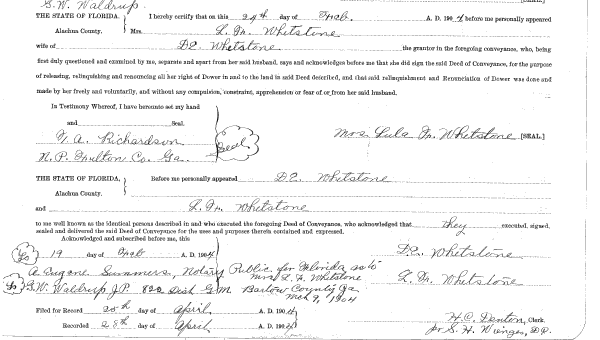 S.W. Waldrup.
THE STATE OF FLORIDA. I hereby certify that on this 24th day of Feb. A. D. 1904 before me personally appeared
Alachua County. Mrs. L. M. Whetstone
wife of D Z Whetstone the grantor in the foregoing conveyance, who, being
first duly questioned and examined by me, separate and apart from her said husband, says and acknowledges before me that she did sign the said Deed of Conveyance, for the purpose
of releasing, relinquishing and renouncing all her right of Dower in and to the land in said Deed described, and that said relinquishment and Renunciation of Dower was done and
made by her freely and voluntarily, and without any compulsion, constraint, apprehension or fear of or from her said husband.
In Testimony Whereof, I have hereunto set my hand
and Seal.
A. Richardson Seal Mrs Lula M. Whetstone [SEAL.]
N. P. Fulton Co. Ga.
THE STATE OF FLORIDA. Before me personally appeared D Z Whetstone
Alachua County.
and L. M. Whetstone
to me well known as the identical persons described in and who executed the foregoing Deed of Conveyance, who acknowledged that they executed, signed,
sealed and delivered the said Deed of Conveyance for the uses and purposes therein contained and expressed.
Acknowledged and subscribed before me, this
19 day of Feb A. D. 1904 D Z Whetstone
A. Eugene Summers, Notary Public for Florida as to
Mrs L. M. Whetstone L. M. Whetstone
S.W. Waldrup J.P. 822 Dist G.M. Bartow County Ga
Mch 9, 1904
Filed for Record 28th day of April A. D. 1904 H.C. Denton, Clerk.
Recorded 28th day of April A. D. 1904 S. H. Wienges, D.C.